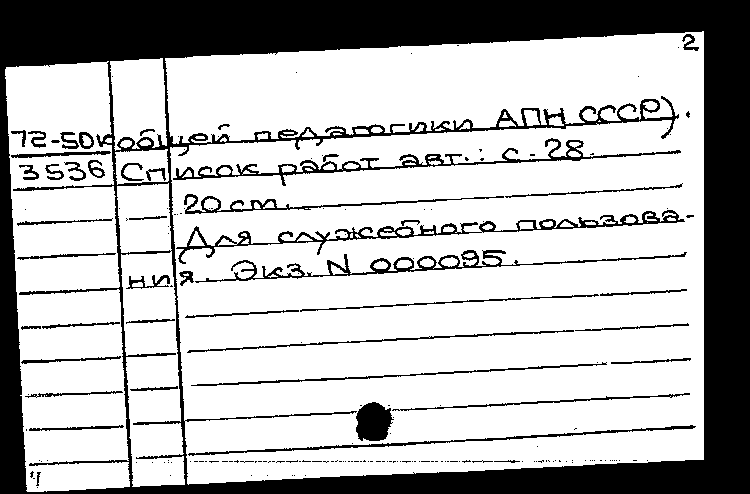 2
72-50к общей педагогики АПН СССР).
3536 Список работ авт.: с. 28.
20 см.
Для служебного пользова-
ния. Экз. N 000095.